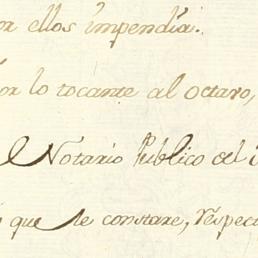 or ellos impendia.
or lo tocante al octavo,
l Notario Publico del
que le constare, respec